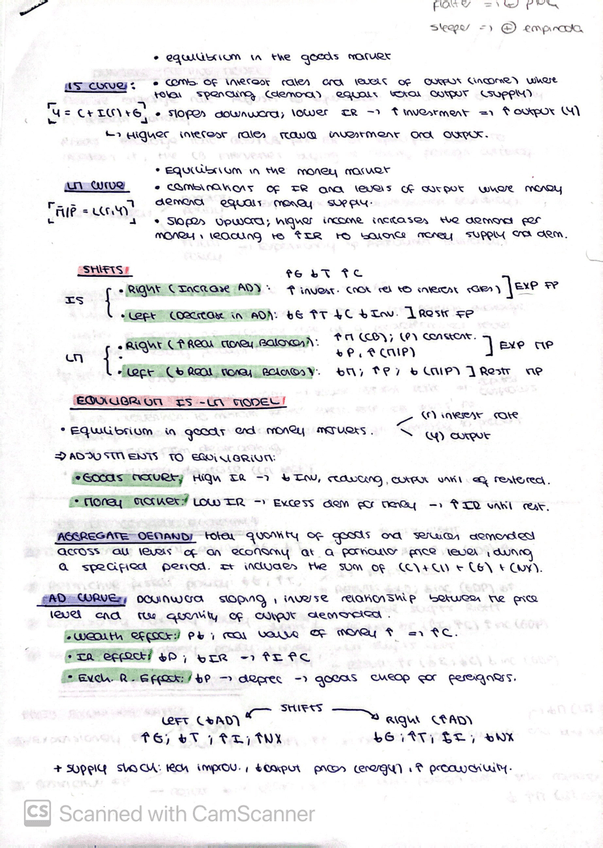 flatter =) ⊕
steeper =) ⊕ empinada
• equilibrium in the goods market
IS CURVE: • comb of interest rates and levels of output (income) where
total spending (demand) equals total output (supply)
[Y = C + I(r) + G] • Slopes downward; lower IR → ↑ investment =) ↑ output (Y)
↳ Higher interest rates reduce investment and output.
• Equilibrium in the money market
LM CURVE • combinations of IR and levels of output where money
demand equals money supply.
[M̄/P̄ = L(r,Y)]
• Slopes upward; higher income increases the demand for
money, leading to ↑IR to balance money supply and dem.
SHIFTS ↑G ↓T ↑C
IS { • Right (Increase AD): ↑ invest. (not rel to interest rates) ] EXP FP
• Left (decrease in AD): ↓G ↑T ↓C ↓Inv. ] Restr FP
LM { • Right (↑Real Money Balances): ↑M (CB); (P) constant.
↓P, ↑(M/P) ] EXP MP
• Left (↓Real Money Balances): ↓M; ↑P; ↓(M/P) ] Restr MP
EQUILIBRIUM IS-LM MODEL
• Equilibrium in goods and money markets. < (r) interest rate
(Y) output
⇒ ADJUSTMENTS TO EQUILIBRIUM:
• Goods market/ High IR → ↓ Inv, reducing output until eq restored.
• Money market/ LOW IR → Excess dem for money → ↑IR until rest.
AGGREGATE DEMAND/ total quantity of goods and services demanded
across all levels of an economy at a particular price level during
a specified period. It includes the sum of (C)+(I)+(G)+(NX).
AD CURVE/ downward sloping, inverse relationship between the price
level and the quantity of output demanded.
• Wealth effect/ P↓; real value of money ↑ =) ↑C.
• IR effect/ ↓P; ↓IR → ↑I ↑C
• Exch. R. Effect/ ↓P → deprec → goods cheap for foreigners.
SHIFTS
LEFT (↓AD) Right (↑AD)
↑G; ↓T; ↑I; ↑NX ↓G; ↑T; ↓I; ↓NX
+ Supply shock: tech improv., ↓output prices (energy), ↑ productivity.
CS Scanned with CamScanner